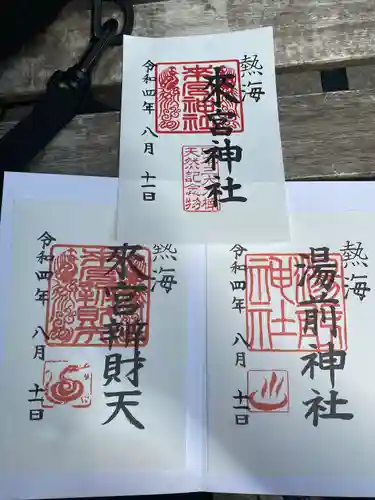 熱海
來宮神社
令和四年 八月 十一日
來宮神社
天然記念物
熱海
來宮辨財天
令和四年 八月 十一日
熱海
湯前神社
令和四年 八月 十一日